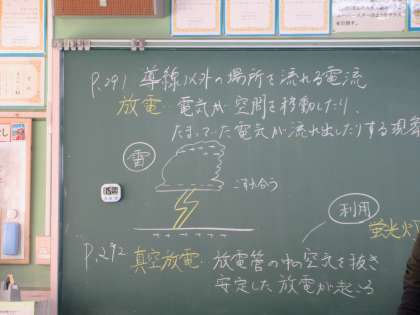 P.291 導線以外の場所を流れる電流
放電… 電気が空間を移動したり、
たまっていた電気が流れ出したりする現象
雷
こすれ合う
利用
蛍光灯
P.292 真空放電… 放電管の中の空気を抜き
安定した放電が起こる